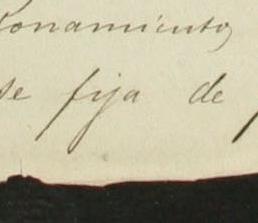 onamiento,
se fija de